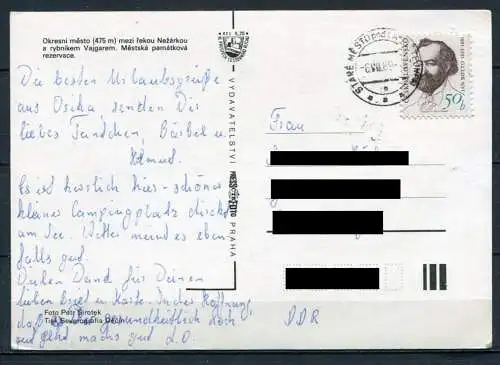 Okresní město (475 m) mezi řekou Nežárkou
a rybníkem Vajgarem. Městská památková
rezervace.
Die besten Urlaubsgrüße
aus Osika senden Dir
liebes Tantchen, Bärbel u
Helmut.
Es ist herrlich hier - schöner
kleiner Campingplatz direkt
am See. Wetter meint es eben-
falls gut.
Vielen Dank für Deinen
lieben Brief u. Karte. In der Hoffnung,
daß es Dir gesundheitlich noch
gut geht machs gut
Foto Petr Sirotek
VYDAVATELSTVÍ
PRESSFOTO
PRAHA
STARÉ MĚSTO
ČESKOSLOVENSKO
50h
Frau
DDR